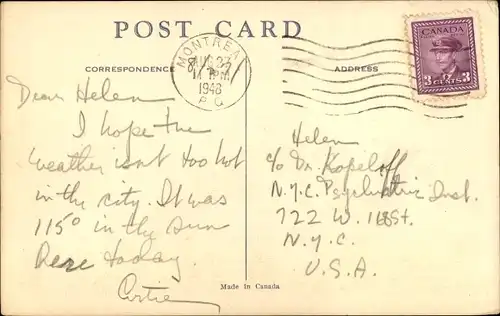 POST CARD
CORRESPONDENCE
ADDRESS
MONTREAL
AUG 27
11 PM
1948
P.Q.
CANADA
3 3
CENTS
Dear Helen
I hope the
weather isnt too hot
in the city. It was
115° in the sun
here today.
Artie
Helen
c/o Dr. Kopeloff
N.Y.C. Psychiatric Inst.
722 W. 168 St.
N.Y.C.
U.S.A.
Made in Canada